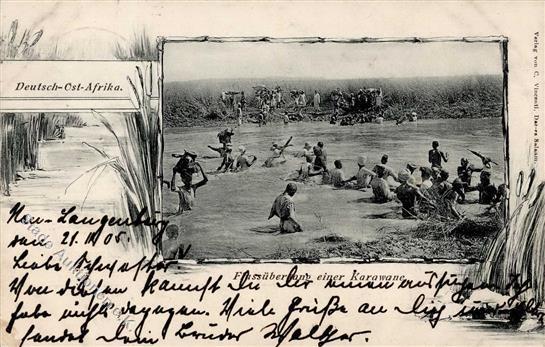 Deutsch-Ost-Afrika.
Verlag von C. Vincenti, Dar-es-Salaam.
Flussübergang einer Karawane.
Neu-Langenburg
den 21. 05
Liebe Schwester
Von diesen kannst Du Dir einen aussuchen Ich
habe nicht dagegen. Viele Grüße an Dich und
sendet Dein Bruder Walther.